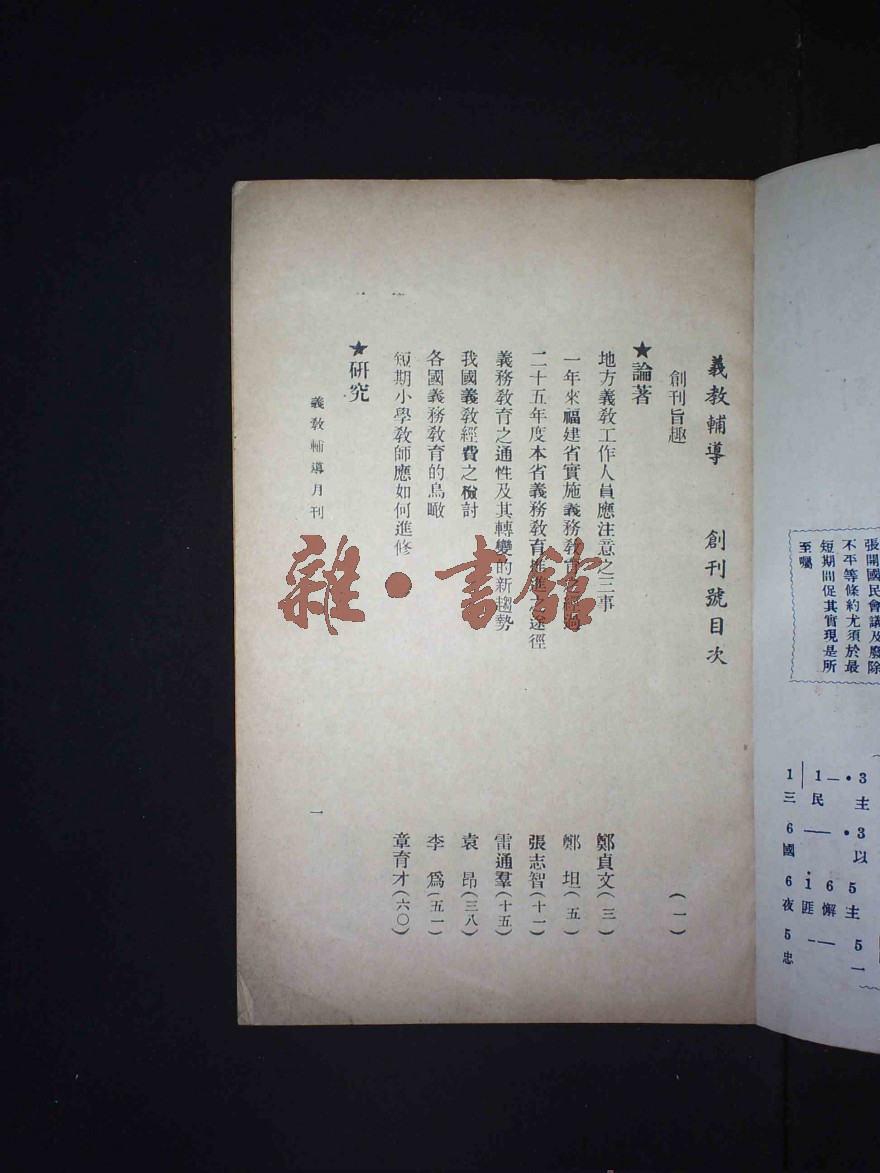 義教輔導　創刊號目次
創刊旨趣 (一)
★論著
地方義教工作人員應注意之三事 鄭貞文(三)
一年來福建省實施義務教育之經過 鄭坦(五)
二十五年度本省義務教育推進之途徑 張志智(十一)
義務教育之通性及其轉變的新趨勢 雷通羣(十五)
我國義教經費之檢討 袁昂(三八)
各國義務教育的鳥瞰 李爲(五一)
短期小學教師應如何進修 章育才(六〇)
★研究
義教輔導月刊
一
雜·書館
張開國民會議及廢除
不平等條約尤須於最
短期間促其實現是所
至囑
1 1 — · 3
三 民 主
6 — · 3
國 以
6 1 6 5
夜 匪 懈 主
5 - — 5
忠 一